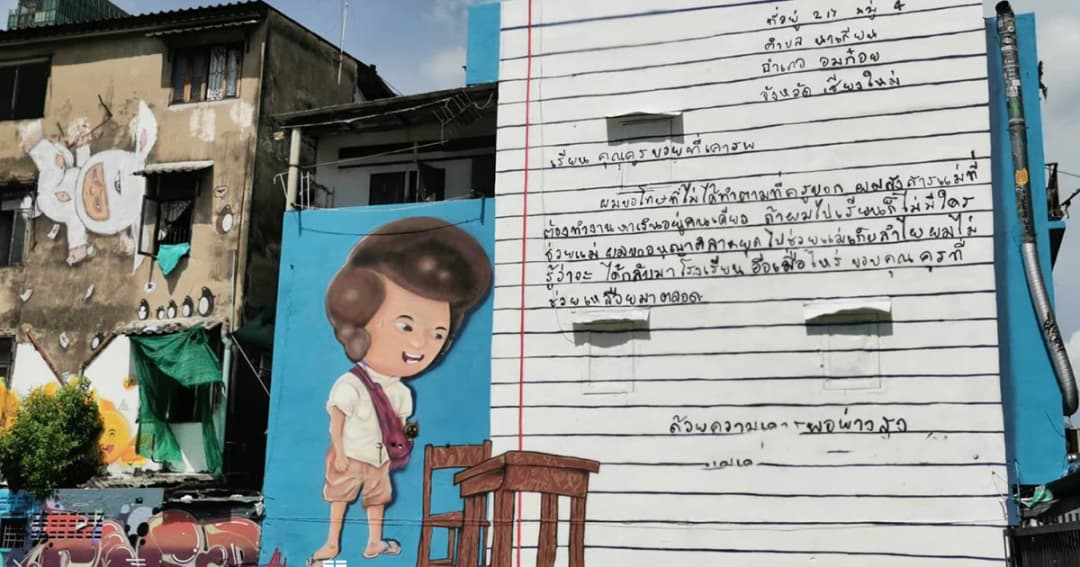 ที่อยู่ 217 หมู่ 4
ตำบล นาเกียน
อำเภอ อมก๋อย
จังหวัด เชียงใหม่
เรียน คุณครูบวยที่เคารพ
ผมขอโทษที่ไม่ได้ทำตามที่ครูบอก ผมสงสารแม่ที่
ต้องทำงานหาเงินอยู่คนเดียว ถ้าผมไปเรียนก็ไม่มีใคร
ช่วยแม่ ผมขออนุญาติลาหยุดไปช่วยแม่เก็บลำไย ผมไม่
รู้ว่าจะ ได้กลับมาโรงเรียน อีกเมื่อไหร่ ขอบคุณ ครูที่
ช่วยเหลือผมมาตลอด
ด้วยความ